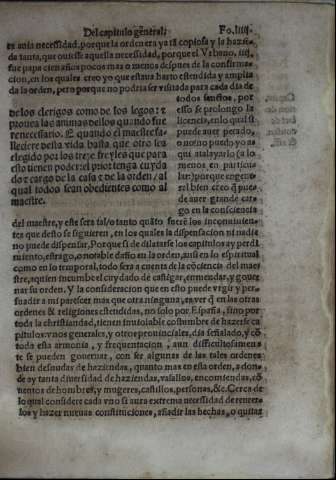 Del capitulo general: Fo. liiij.
es auia necessidad, porque la orden era ya tã copiosa y la hazie
da tanta, que ouiesse aquella necessidad, porque el Vrbano, iiij.
fue papa cien años pocos mas o menos despues de la confirma
cion, en los quales creo yo que estaua harto estendida y amplia
da la orden, pero porque no podria ser visitada para cada dia de
todos sanctos, por
delos clerigos como de los legos: z
prouea las animas dellos quando fue
re necessario. E quando el maestre fa
lleciere desta vida hasta que otro sea
elegido por los treze freyles que para
esto tienen poder: el prior tenga cuyda
do z cargo de la casa z de la orden / al
qual todos sean obedientes como al
maestre.
esso se prolongo la
licencia, en lo qual si
puede auer pecado,
o no: no puedo yo a
qui atalayarlo (a lo
menos en particu
lar:) porque en gene
rel bien creo q̃ pue
de auer grande car
go en la consciencia
del maestre, y este sera tal o tanto quãto fuerẽ los inconuenien
tes que desto se siguieren, en los quales la dispensacion ni nadie
no puede dispensar, Porque si de dilatarse los capitulos ay perdi
miento, estrago, o notable daño en la orden, assi en lo spiritual
como en lo temporal, todo sera a cuenta de la cõciencia del maes
tre, a quien incumbe el cuydado de castigar, enmendar, y gouer
nar su orden. Y la consideracion que en esto puede vrgir y per-
suadir a mi parescer mas que otra ninguna, es ver q̃ en las otras
ordenes & religiones estendidas, no solo por España, sino por
toda la christiandad, tienen immutable costumbre de hazerse ca
pitulos: vnos generales, y otros prouinciales, dia señalado, y cõ
toda esta armonia, y frequentacion, aun difficultosamen
te se pueden gouernar, con ser algunas de las tales ordenes
bien desnudas de haziendas, quanto mas en esta orden, a don-
de ay tanta diuersidad de haziendas, vasallos, encomiendas, cõ
uentos de hombres, y mugeres, castillos, personas, &c. Cerca de
lo qual considere cada vno si aura extrema necessidad de reueer
los y hazer nueuas constituciones, añadir las hechas, o quitar